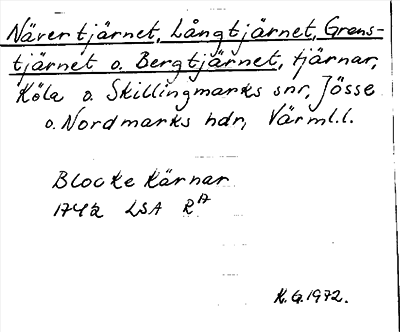 Nävertjärnet, Långtjärnet, Grens-
tjärnet o. Bergtjärnet, tjärnar,
Köla o. Skillingmarks snr, Jösse
o. Nordmarks hdr, Värml.l.
Blocke Kärnar
1742 LSA R
K.G.1972.